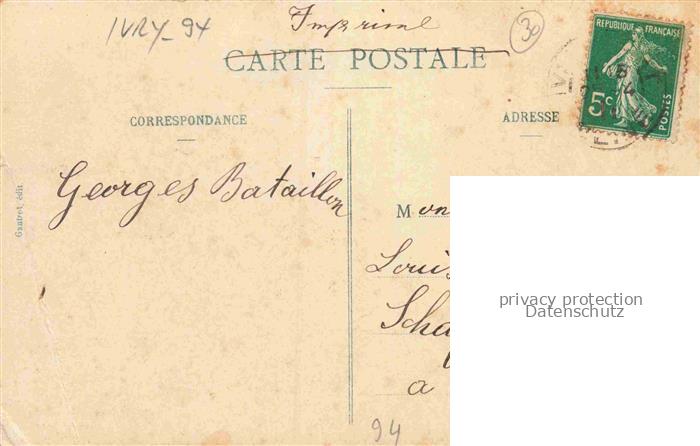 IVRY_94
Imprimé
30
CARTE POSTALE
REPUBLIQUE FRANÇAISE
5c
POSTES
CORRESPONDANCE
ADRESSE
Georges Bataillon
Gautrot, édit
M
Louis
a
94
privacy protection
Datenschutz